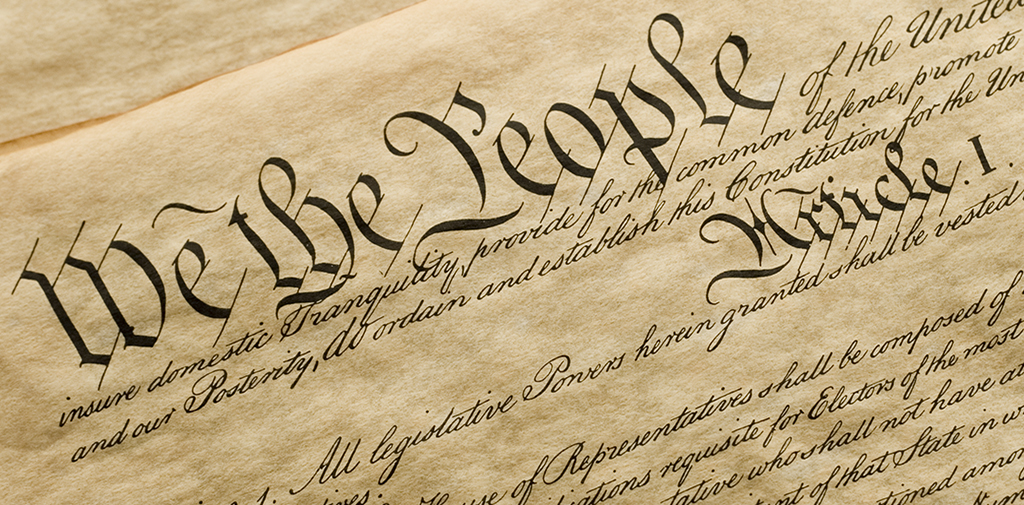 We the People of the United
insure domestic Tranquility, provide for the common defence, promote
and our Posterity, do ordain and establish this Constitution for the Un
Article. I.
1. All legislative Powers herein granted shall be vested
of Representatives shall be composed of
requisite for Electors of the most
who shall not have at
of that State in w